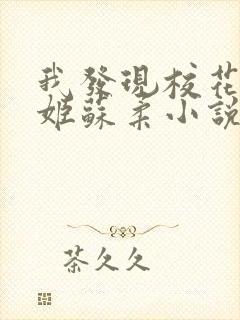 我發現校花
姬蘇柔小說
茶久久